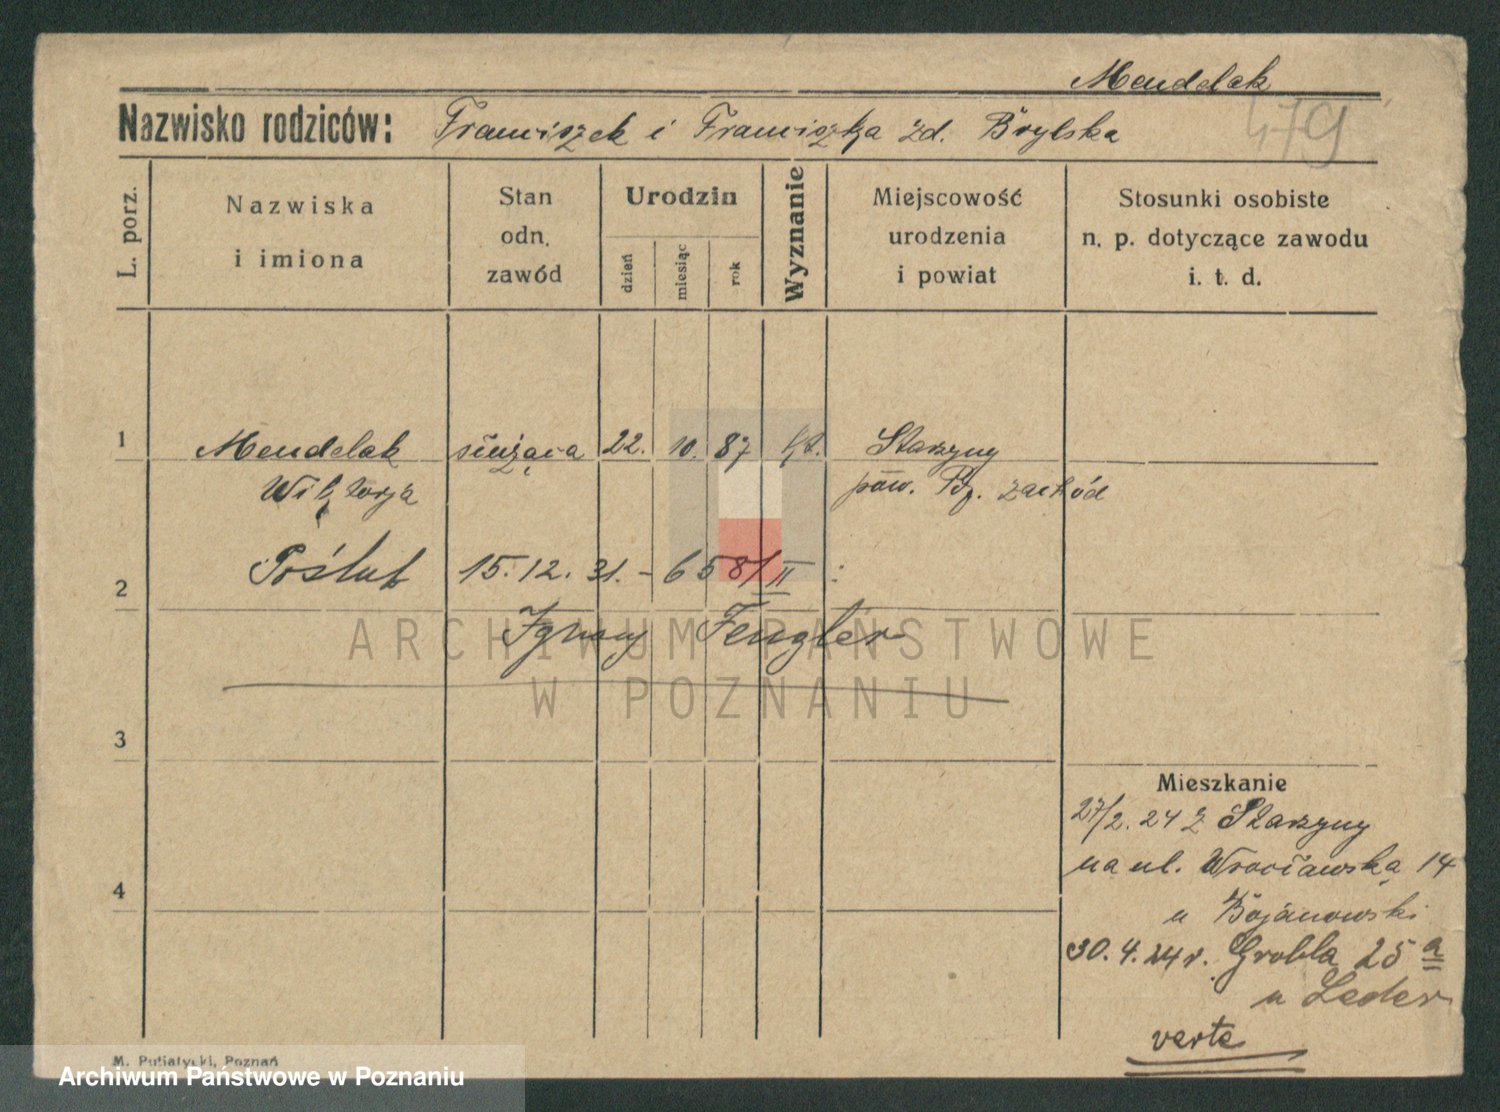 Mendelak
Nazwisko rodziców: Franciszek i Franciszka zd. Brylska
479
L. porz.
Nazwiska
i imiona
Stan
odn.
zawód
Urodzin
dzień
miesiąc
rok
Wyznanie
Miejscowość
urodzenia
i powiat
Stosunki osobiste
n. p. dotyczące zawodu
i. t. d.
1 Mendelak służąca 22. 10. 87 kt. Starzyny
Wiktorja pow. Pozn. zachód
2 Pośłub 15. 12. 31. - 658/II :
Ignacy Fengler
ARCHIWUM PAŃSTWOWE
W POZNANIU
3
Mieszkanie
27/2. 24 z Starzyny
4
na ul. Wrocławską 14
u Bojanowski
30. 4. 24 r. Grobla 25 a
u Leder
verte
M. Putiatycki, Poznań
Archiwum Państwowe w Poznaniu